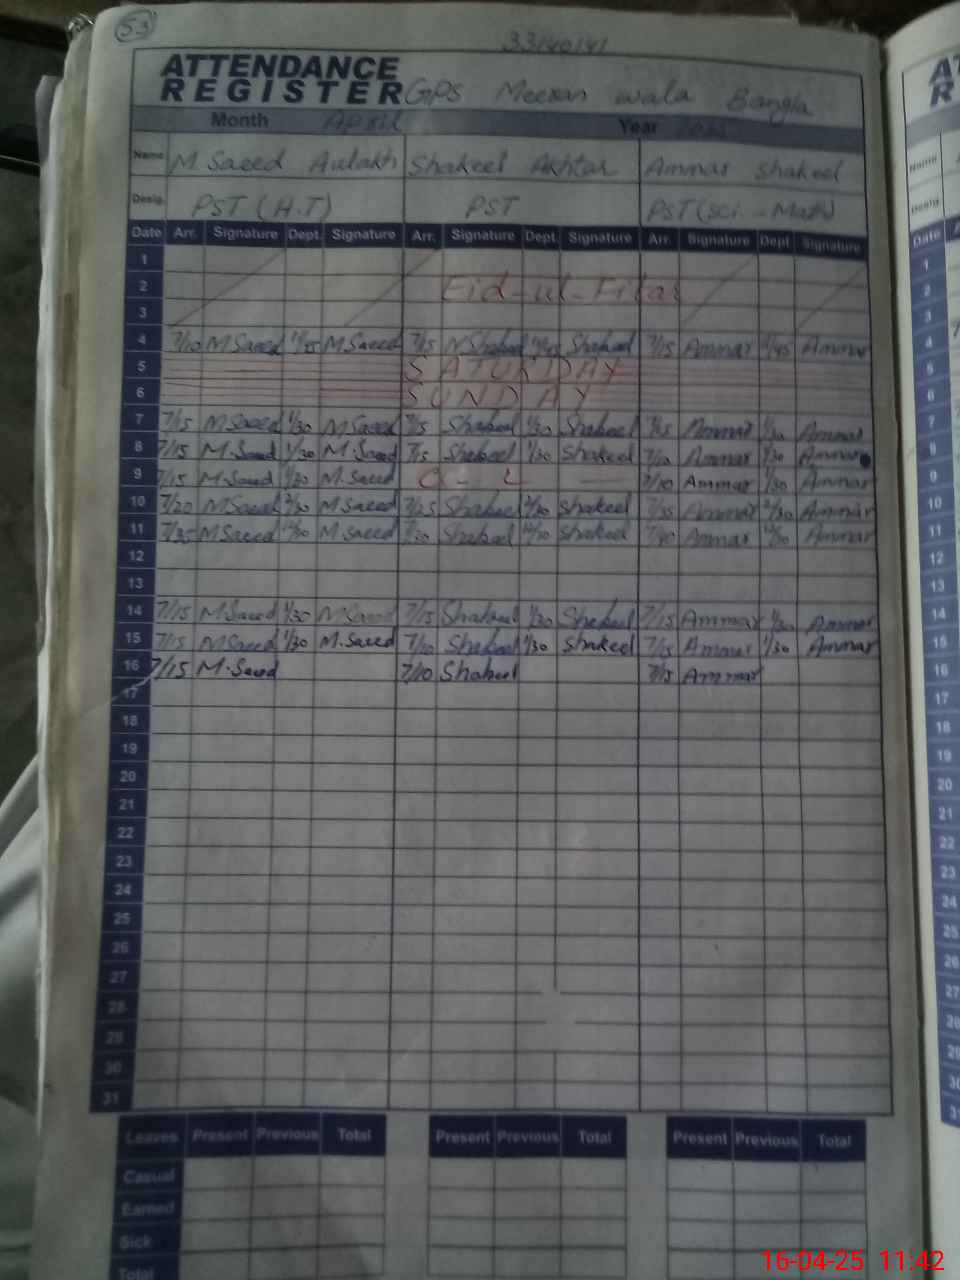 53
33140141
ATTENDANCE
REGISTER GPS Meeran wala Bangla
Month April Year
Name M Saeed Aulakh Shakeel Akhtar Ammar Shakeel
Desig. PST (H.T) PST PST (Sci. - Math)
Date Arr. Signature Dept. Signature Arr. Signature Dept. Signature Arr. Signature Dept. Signature
1
2 Eid-ul-Fitar
3
4 7/10 M Saeed 11/45 M Saeed 7/15 M Shakeel 11/45 Shakeel 7/15 Ammar 11/45 Ammar
5 SATURDAY
6 SUNDAY
7 7/15 M Saeed 1/30 M Saeed 7/15 Shakeel 1/30 Shakeel 7/15 Ammar 1/30 Ammar
8 7/15 M. Saeed 1/30 M. Saeed 7/15 Shakeel 1/30 Shakeel 7/10 Ammar 1/30 Ammar
9 7/15 M. Saeed 1/30 M. Saeed C - L 7/10 Ammar 1/30 Ammar
10 7/20 M Saeed /30 M Saeed 7/25 Shakeel /30 Shakeel Ammar /30 Ammar
11 7/35 M Saeed 12/30 M Saeed Shakeel 12/30 Shakeel Ammar 12/30 Ammar
12
13
14 7/15 M Saeed 1/30 M Saeed 7/15 Shakeel 1/30 Shakeel 7/15 Ammar 1/30 Ammar
15 7/15 M Saeed 1/30 M. Saeed 7/10 Shakeel 1/30 Shakeel 7/15 Ammar 1/30 Ammar
16 7/15 M. Saeed 7/10 Shakeel 7/15 Ammar
17
18
19
20
21
22
23
24
25
26
27
28
29
30
31
Leaves Present Previous Total Present Previous Total Present Previous Total
Casual
Earned
Sick
Total
16-04-25 11:42